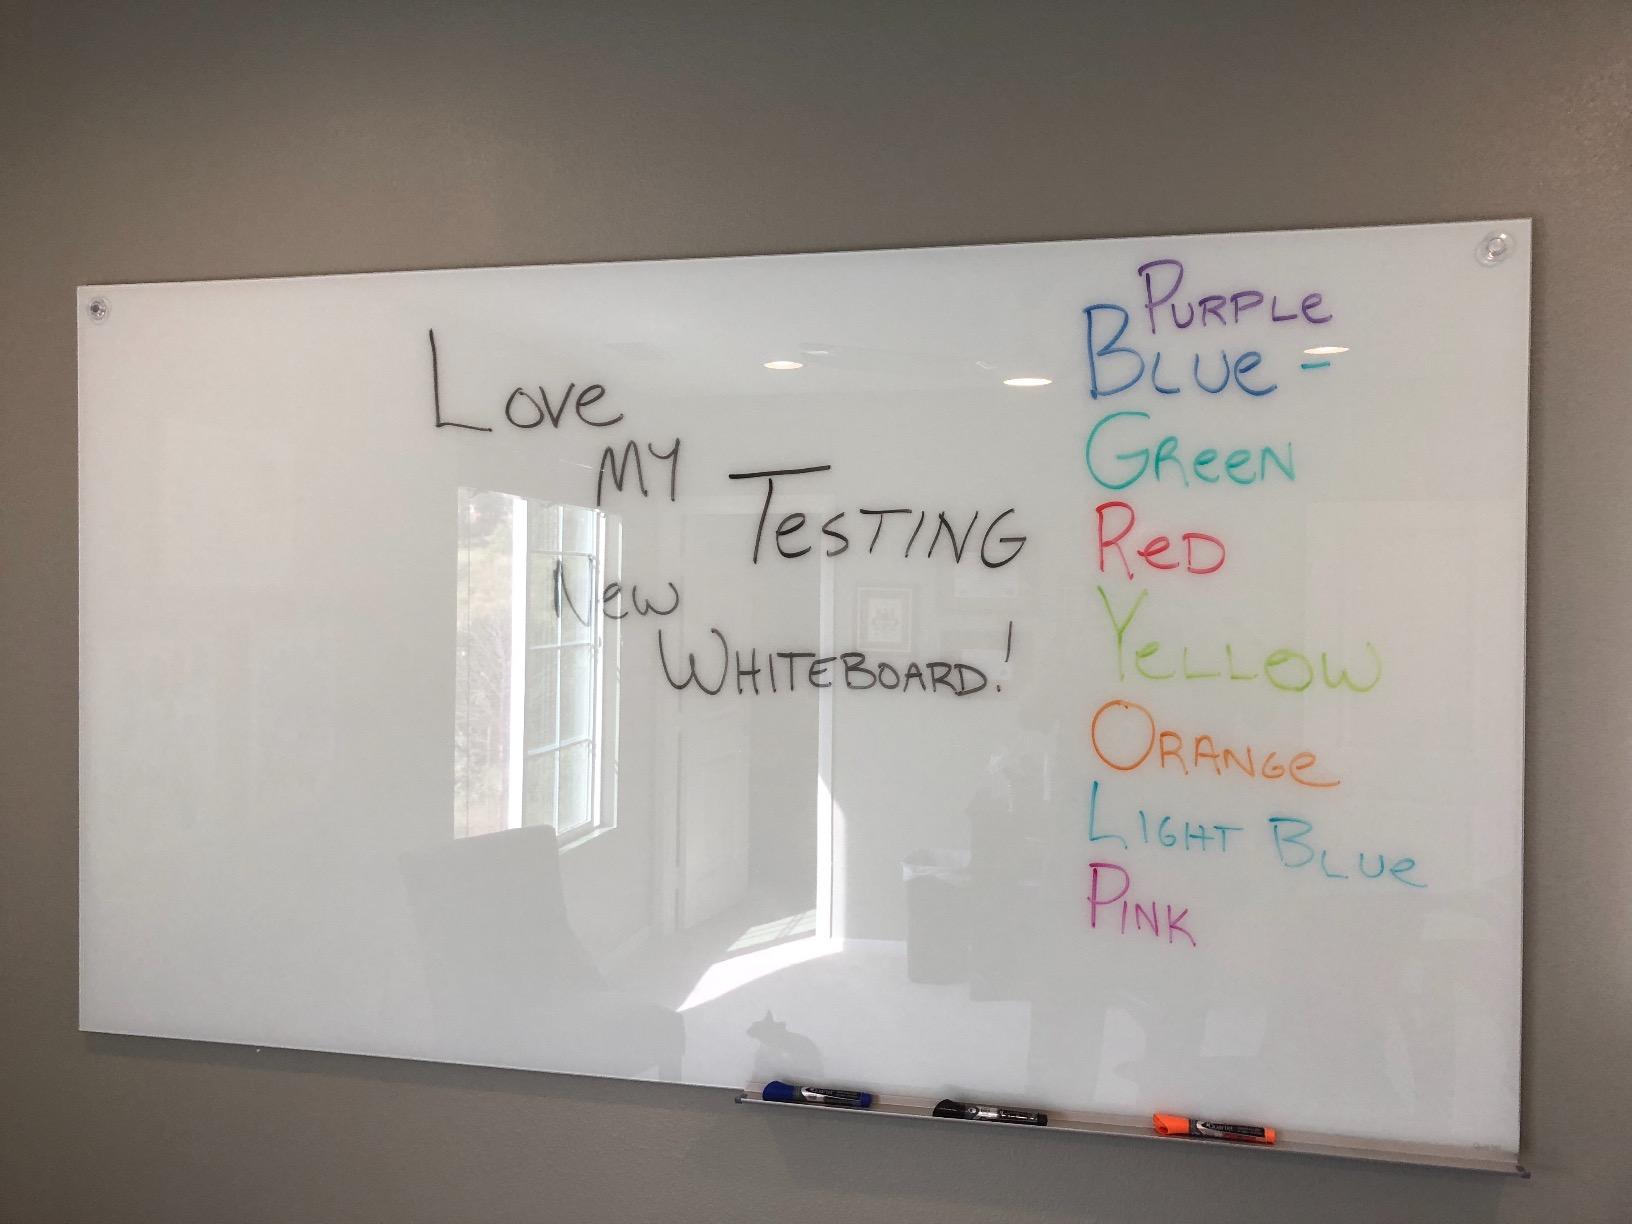 Love
MY
TesTING
New
WHITEBOARD!
PURPLe
BLUe -
GReeN
ReD
YeLLOW
ORANGe
LIGHT BLUe
PINK
Quartet